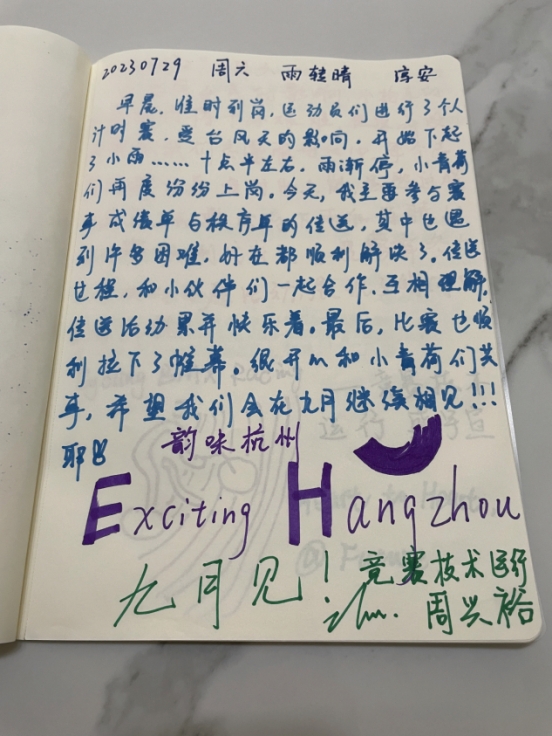 20230729 周六 雨转晴 淳安
早晨，准时到岗，运动员们进行了个人
计时赛，受台风天的影响，开始下起
了小雨……十点半左右，雨渐停，小青荷
们再度纷纷上岗。今天，我主要参与赛
事成绩单与秩序单的传送，其中也遇
到许多困难，好在都顺利解决了。传送
过程，和小伙伴们一起合作、互相理解，
传送活动累并快乐着。最后，比赛也顺
利拉下了帷幕。很开心和小青荷们共
事，希望我们会在九月继续相见!!!
耶
韵味杭州
Exciting Hangzhou
九月见！竞赛技术运行
周兴裕